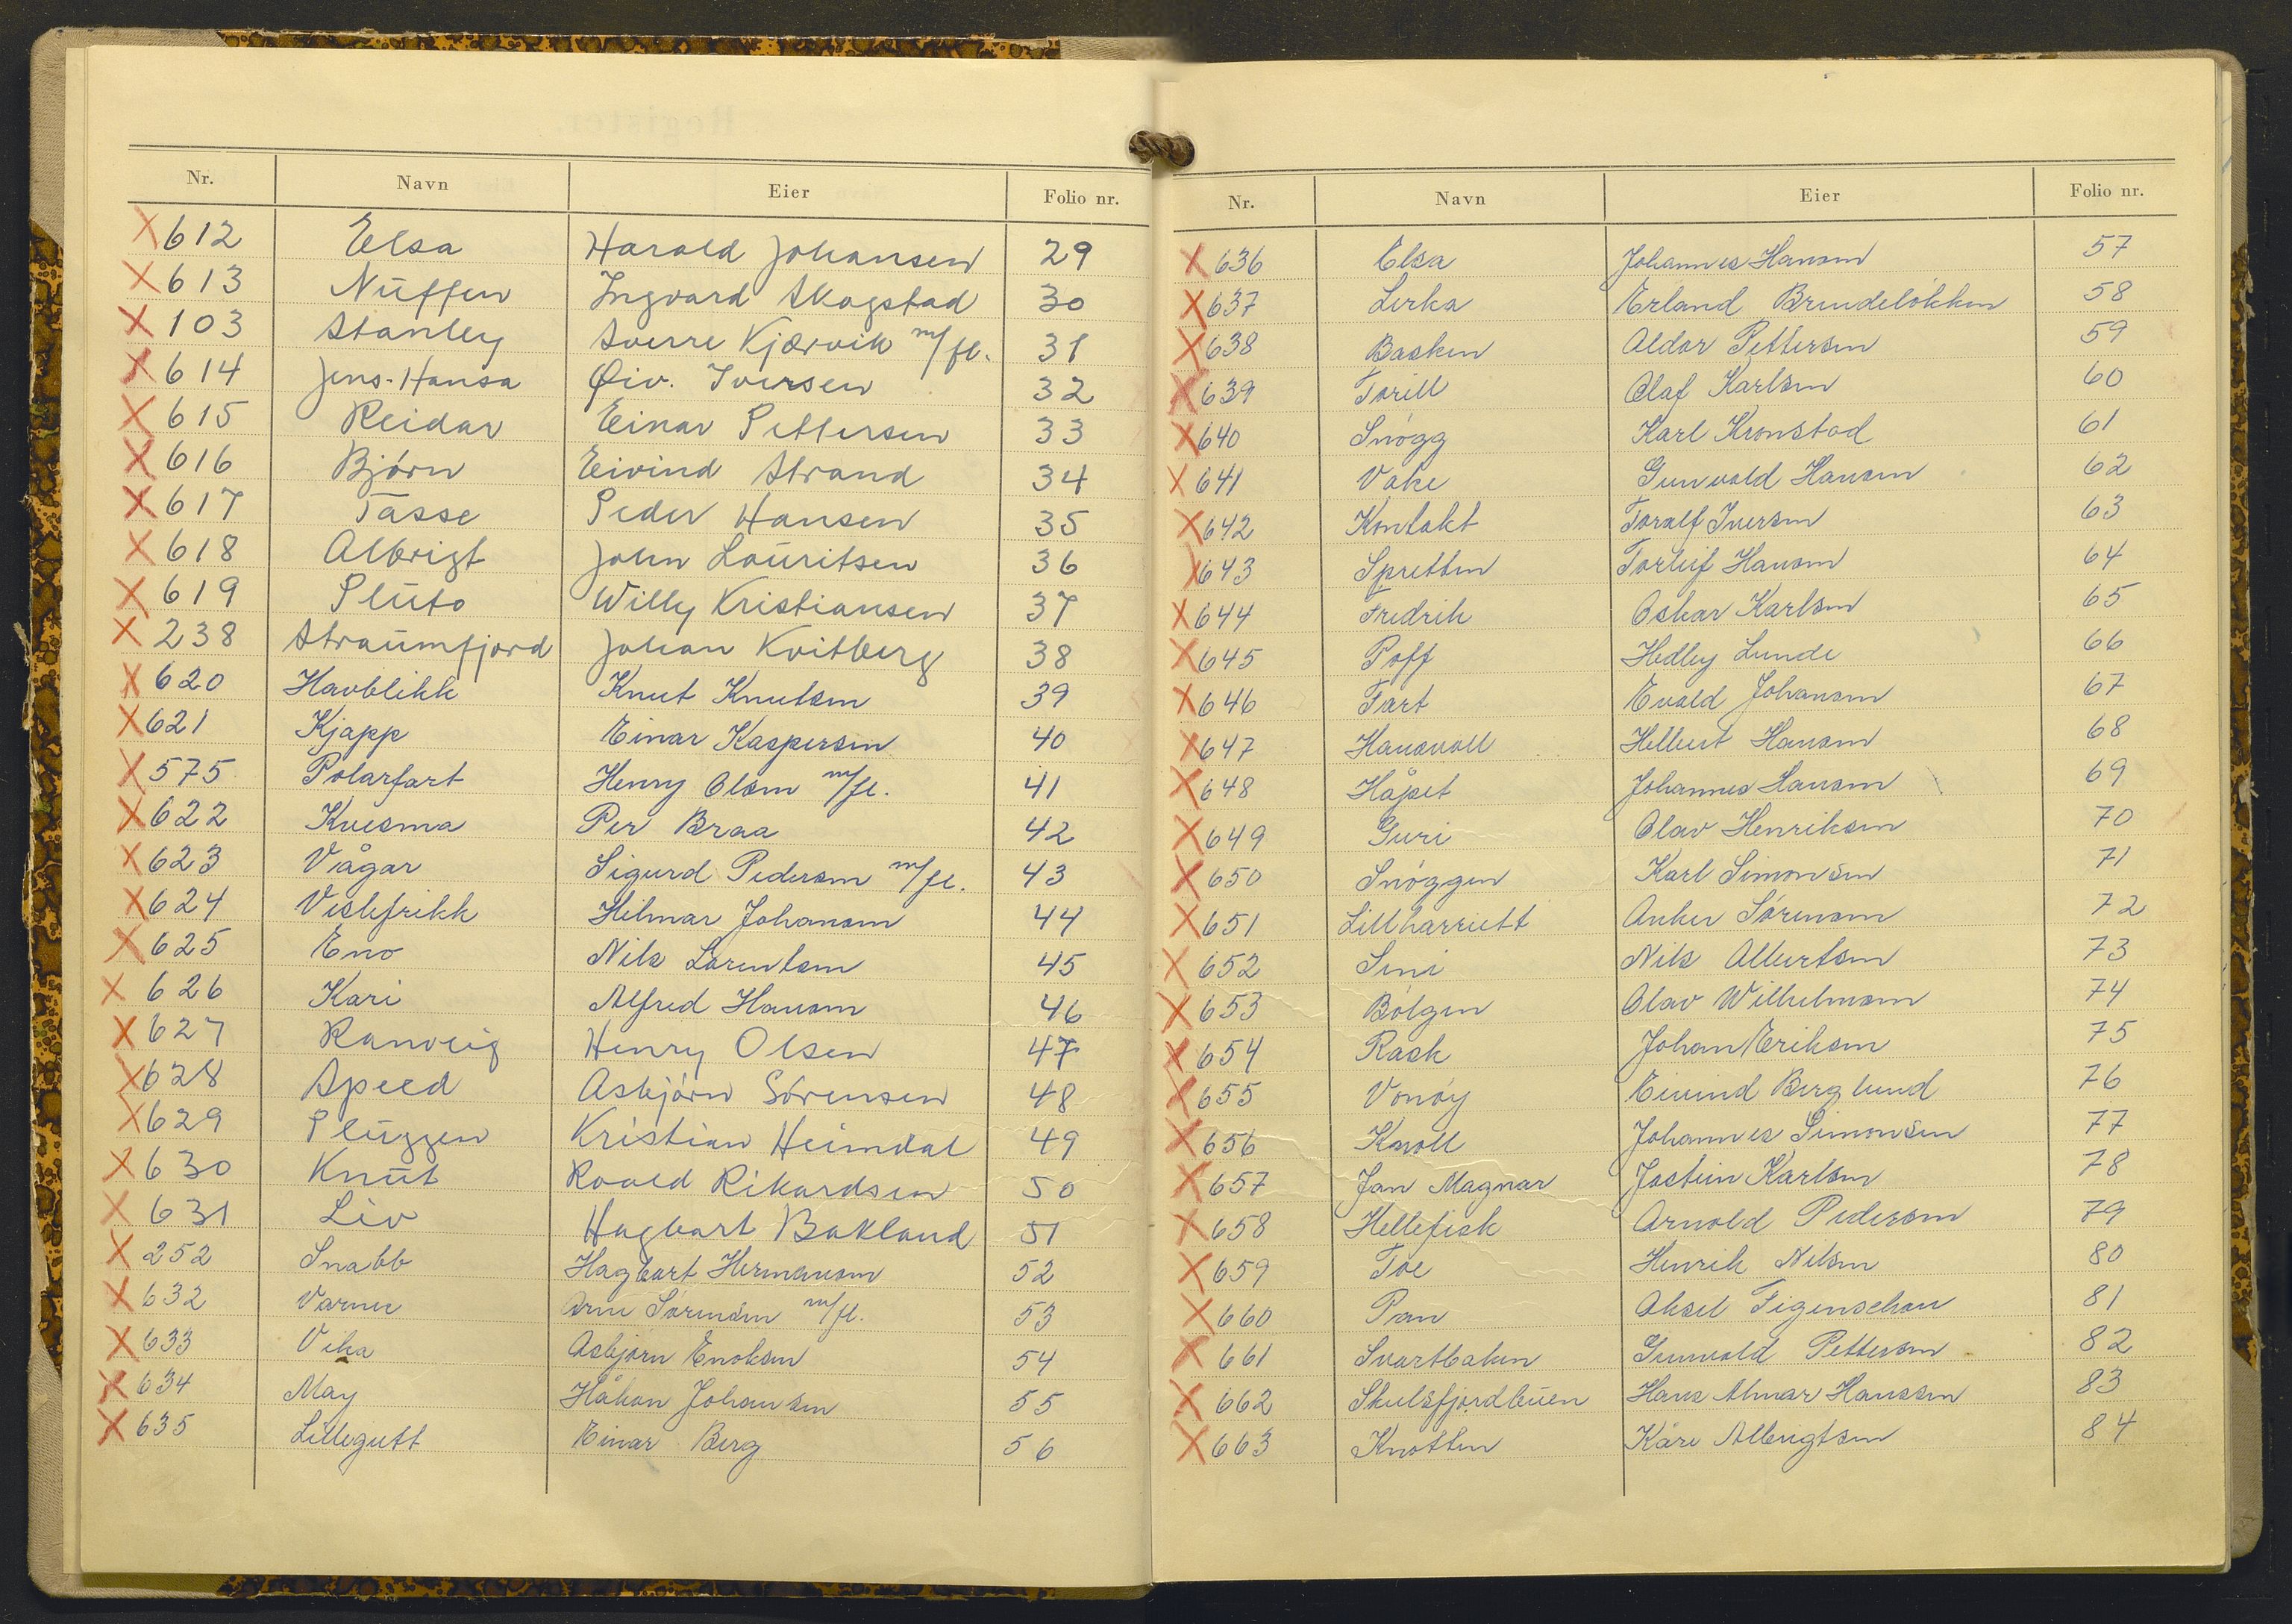 Nr. Navn Eier Folio nr.
X 612 Elsa Harald Johansen 29
X 613 Nuffen Ingvard Skogstad 30
X 103 Stanley Sverre Kjærvik m/fl. 31
X 614 Jens-Hansa Øiv. Iversen 32
X 615 Reidar Einar Pettersen 33
X 616 Bjørn Eivind Strand 34
X 617 Tasse Peder Hansen 35
X 618 Albrigt John Lauritsen 36
X 619 Pluto Willy Kristiansen 37
X 238 Straumfjord Johan Kvitberg 38
X 620 Havblikk Knut Knutsen 39
X 621 Kjapp Einar Kaspersen 40
X 575 Polarfart Henry Olsen m/fl. 41
X 622 Kvesma Per Braa 42
X 623 Vågar Sigurd Pedersen m/fl. 43
X 624 Veslefrikk Hilmar Johansen 44
X 625 Eno Nils Lorentsen 45
X 626 Kari Alfred Hansen 46
X 627 Ranveig Henry Olsen 47
X 628 Speed Asbjørn Sørensen 48
X 629 Pluggen Kristian Heimdal 49
X 630 Knut Roald Rikardsen 50
X 631 Liv Hagbart Bakland 51
X 252 Snabb Hagbart Hermansen 52
X 632 Varner Arne Sørensen m/fl. 53
X 633 Vika Asbjørn Enoksen 54
X 634 May Håkon Johansen 55
X 635 Lillegutt Einar Berg 56
Nr. Navn Eier Folio nr.
X 636 Elsa Johannes Hansen 57
X 637 Lerka Erland Brendeløkken 58
X 638 Basken Aldor Pettersen 59
X 639 Torill Olaf Karlsen 60
X 640 Snøgg Karl Kronstad 61
X 641 Vake Gunvald Hansen 62
X 642 Kontakt Toralf Iversen 63
X 643 Spretten Torleif Hansen 64
X 644 Fredrik Oskar Karlsen 65
X 645 Poff Hedley Lunde 66
X 646 Fart Evald Johansen 67
X 647 Hansvoll Helbert Hansen 68
X 648 Håpet Johannes Hansen 69
X 649 Guri Olav Henriksen 70
X 650 Snøggen Karl Simonsen 71
X 651 Lillharriett Anker Sørensen 72
X 652 Sini Nils Albertsen 73
X 653 Bølgen Olav Wilhelmsen 74
X 654 Rask Johan Eriksen 75
X 655 Vonøy Eivind Berglund 76
X 656 Knoll Johannes Simonsen 77
X 657 Jan Magnar Jostein Karlsen 78
X 658 Hellefisk Arnold Pedersen 79
X 659 Toe Henrik Nilsen 80
X 660 Pan Aksel Figenschau 81
X 661 Svartbaken Gunvald Pettersen 82
X 662 Skulsfjordbuen Hans Almar Hanssen 83
X 663 Knotten Kåre Albrigtsen 84